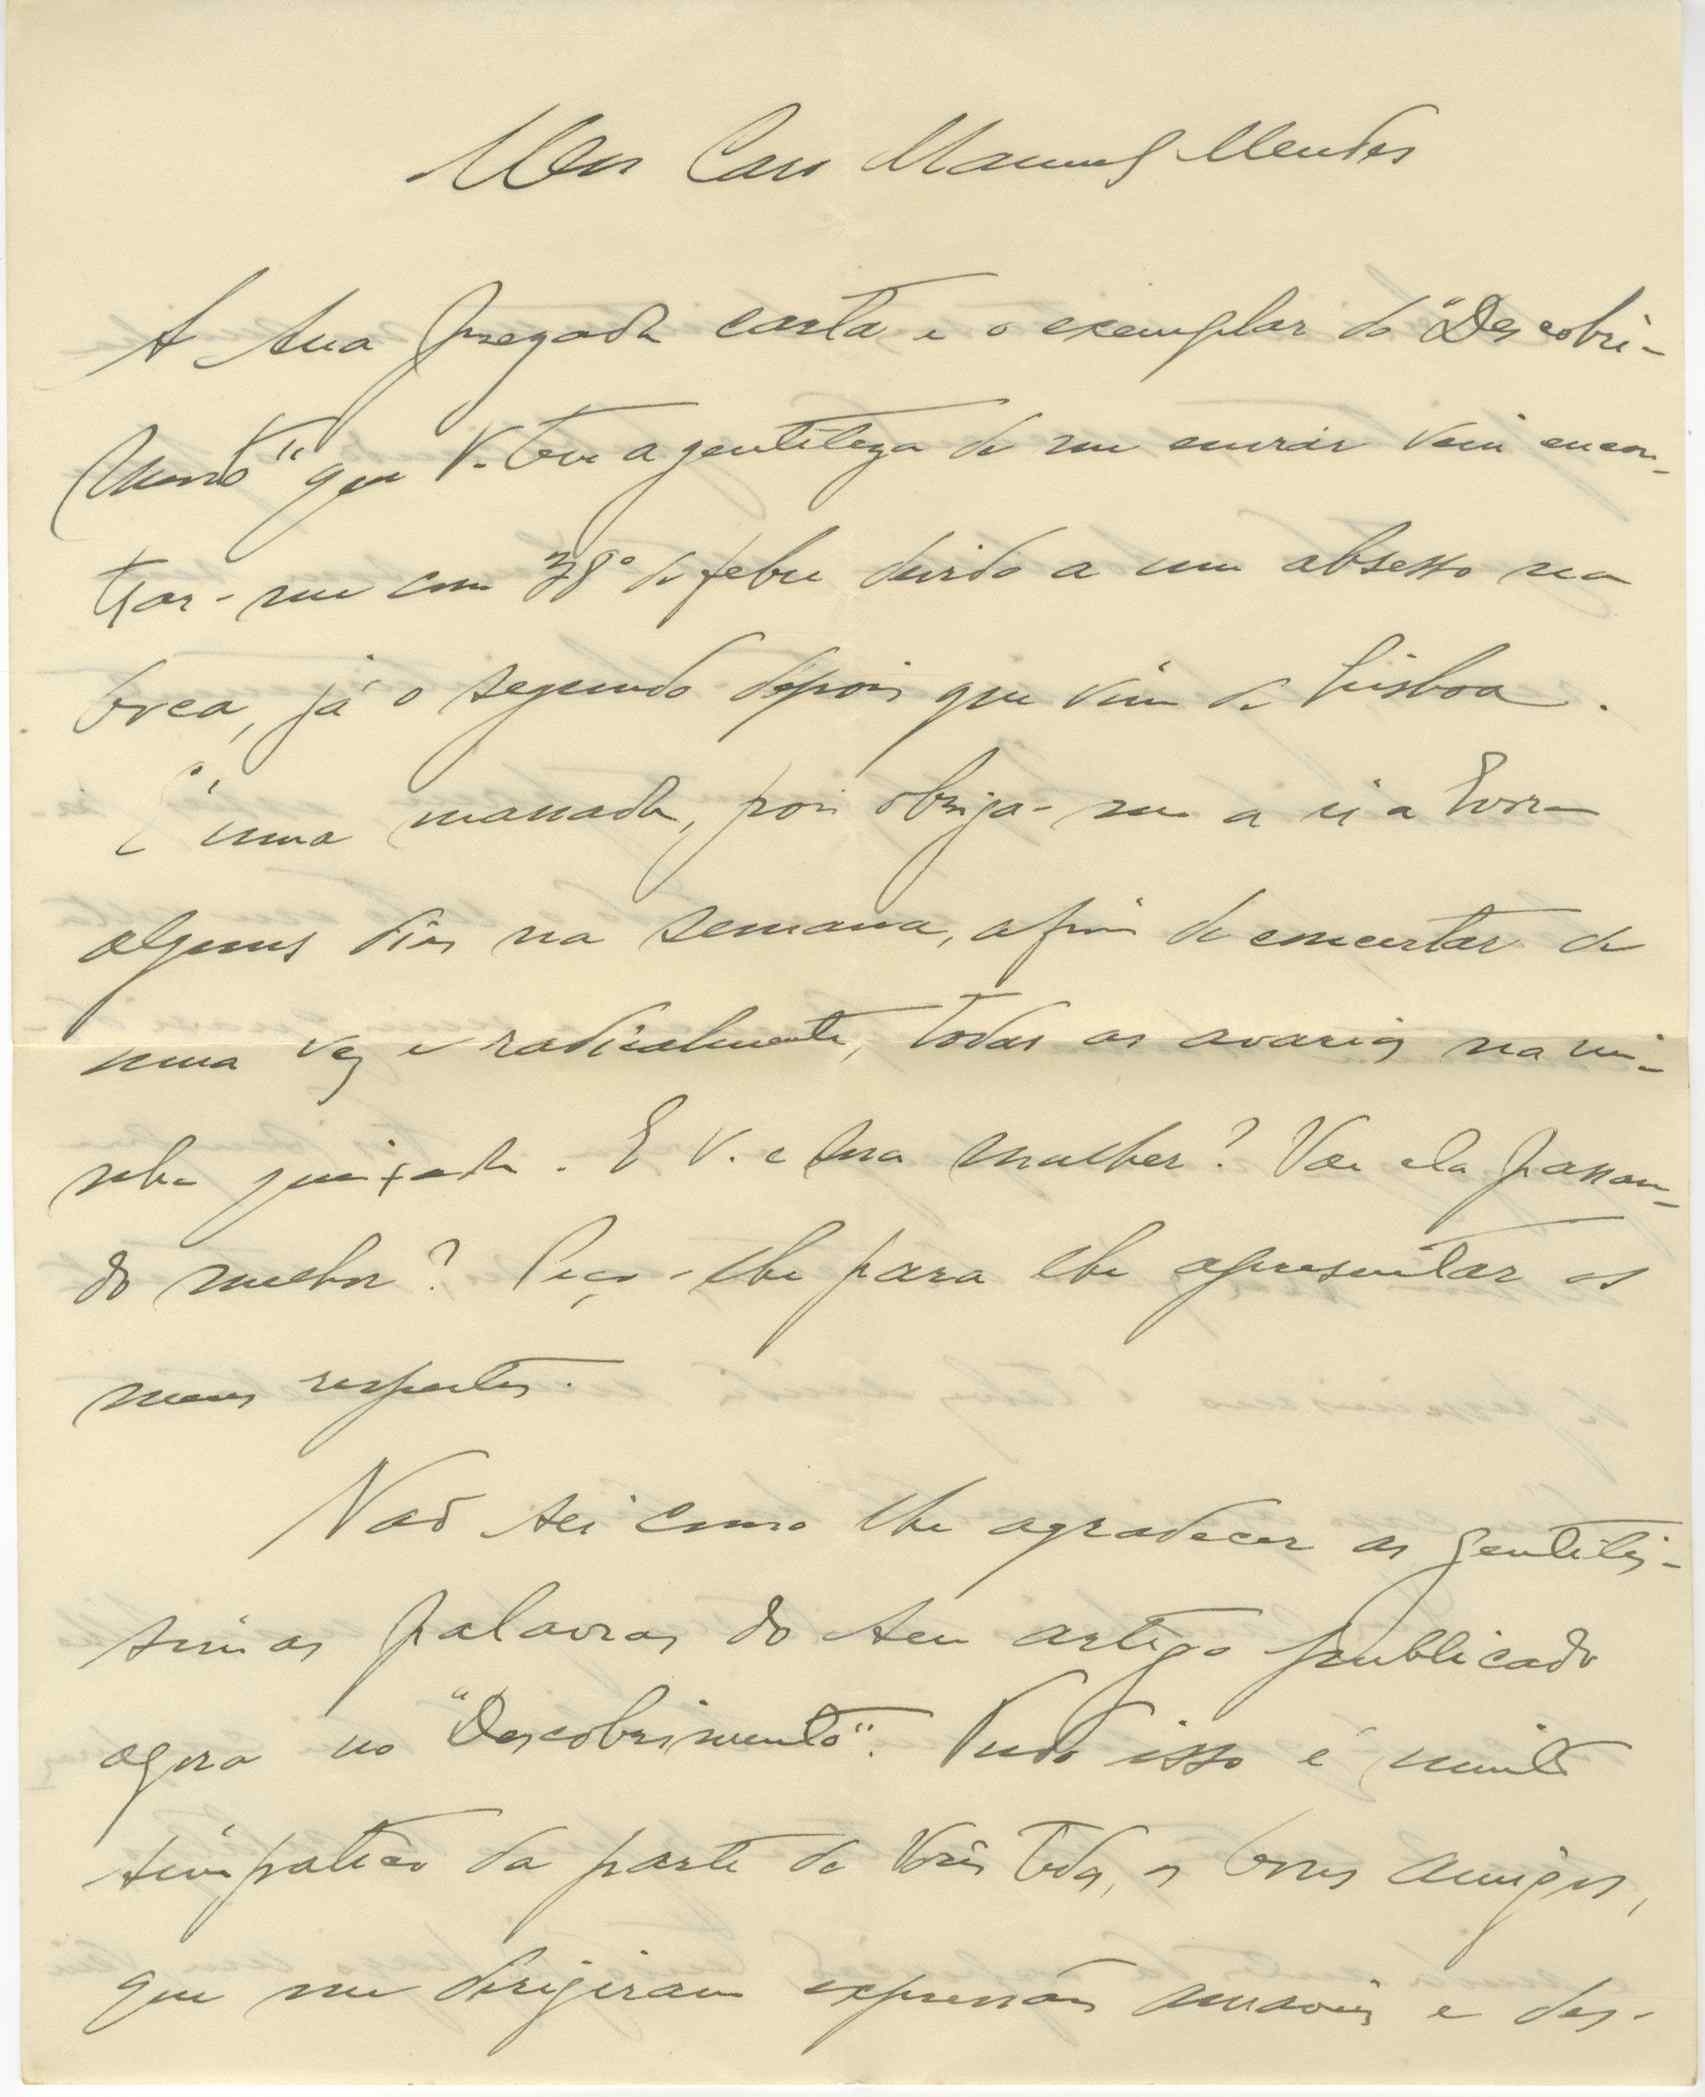 Meu Caro Manuel Mendes
A sua prezada carta e o exemplar do "Descobri-
mento" que V. teve a gentileza de me enviar veiu encon-
trar-me com 38° de febre devido a um absesso na
boca, já o segundo depois que vim de Lisboa.
É uma massada, pois obriga-me a ir a Evora
alguns dias na semana, afim de concertar de
uma vez e radicalmente, todas as avarias na mi-
nha queixada. E V. e sua mulher? Vae ela passan-
do melhor? Peço-lhe para lhe apresentar os
meus respeitos.
Não sei como lhe agradecer as gentilis-
simas palavras do seu artigo publicado
agora no "Descobrimento". Tudo isso é muito
simpatico da parte de Vocês todos, os bons amigos,
que me dirigiram expressões amaveis e des-